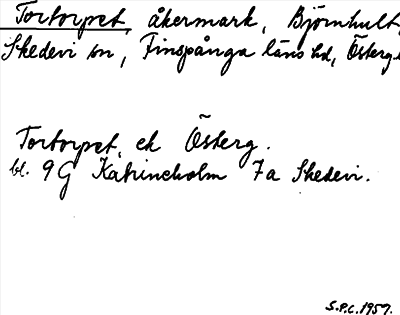 Tortorpet, åkermark, Björnhult,
Skedevi sn, Finspånga läns hd, Österg.
Tortorpet, ek Österg.
bl. 9G Katrineholm 7a Skedevi.
S.P.C. 1959.